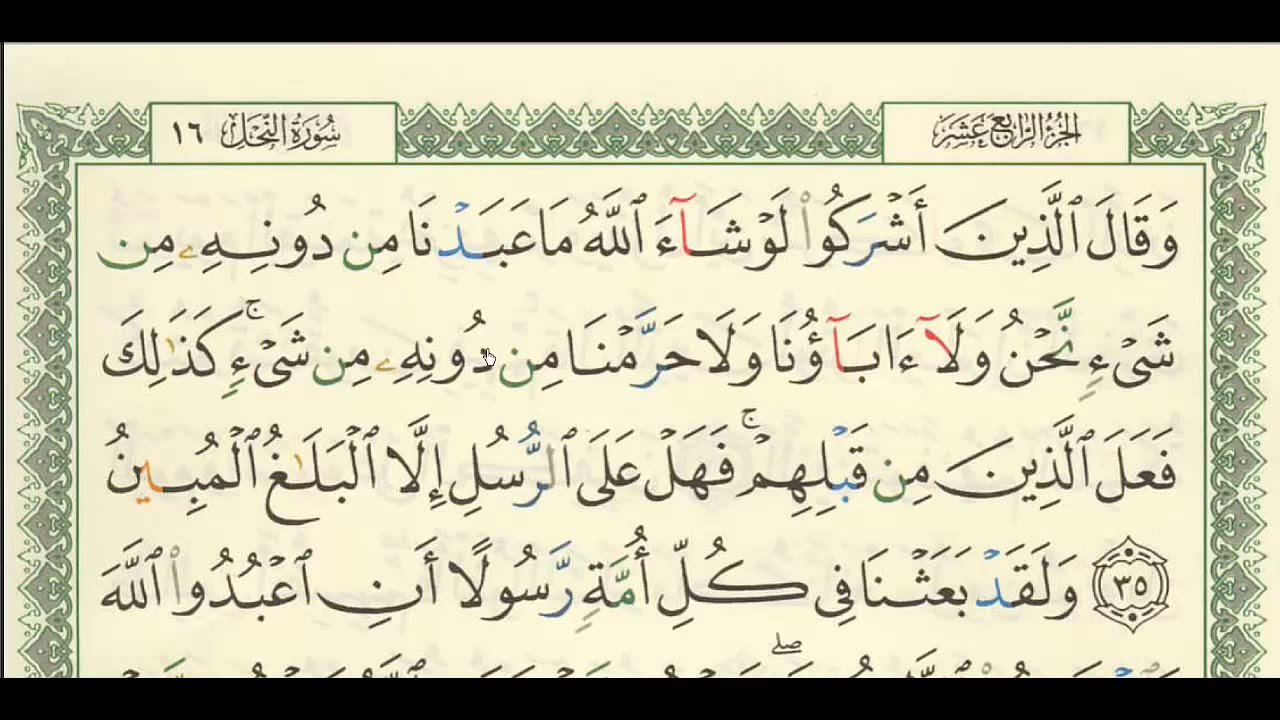 الجزء الرابع عشر
سورة النحل ١٦
وَقَالَ ٱلَّذِينَ أَشْرَكُوا۟ لَوْ شَآءَ ٱللَّهُ مَا عَبَدْنَا مِن دُونِهِۦ مِن
شَىْءٍ نَّحْنُ وَلَآ ءَابَآؤُنَا وَلَا حَرَّمْنَا مِن دُونِهِۦ مِن شَىْءٍ ۚ كَذَٰلِكَ
فَعَلَ ٱلَّذِينَ مِن قَبْلِهِمْ ۚ فَهَلْ عَلَى ٱلرُّسُلِ إِلَّا ٱلْبَلَـٰغُ ٱلْمُبِينُ
٣٥ وَلَقَدْ بَعَثْنَا فِى كُلِّ أُمَّةٍ رَّسُولًا أَنِ ٱعْبُدُوا۟ ٱللَّهَ